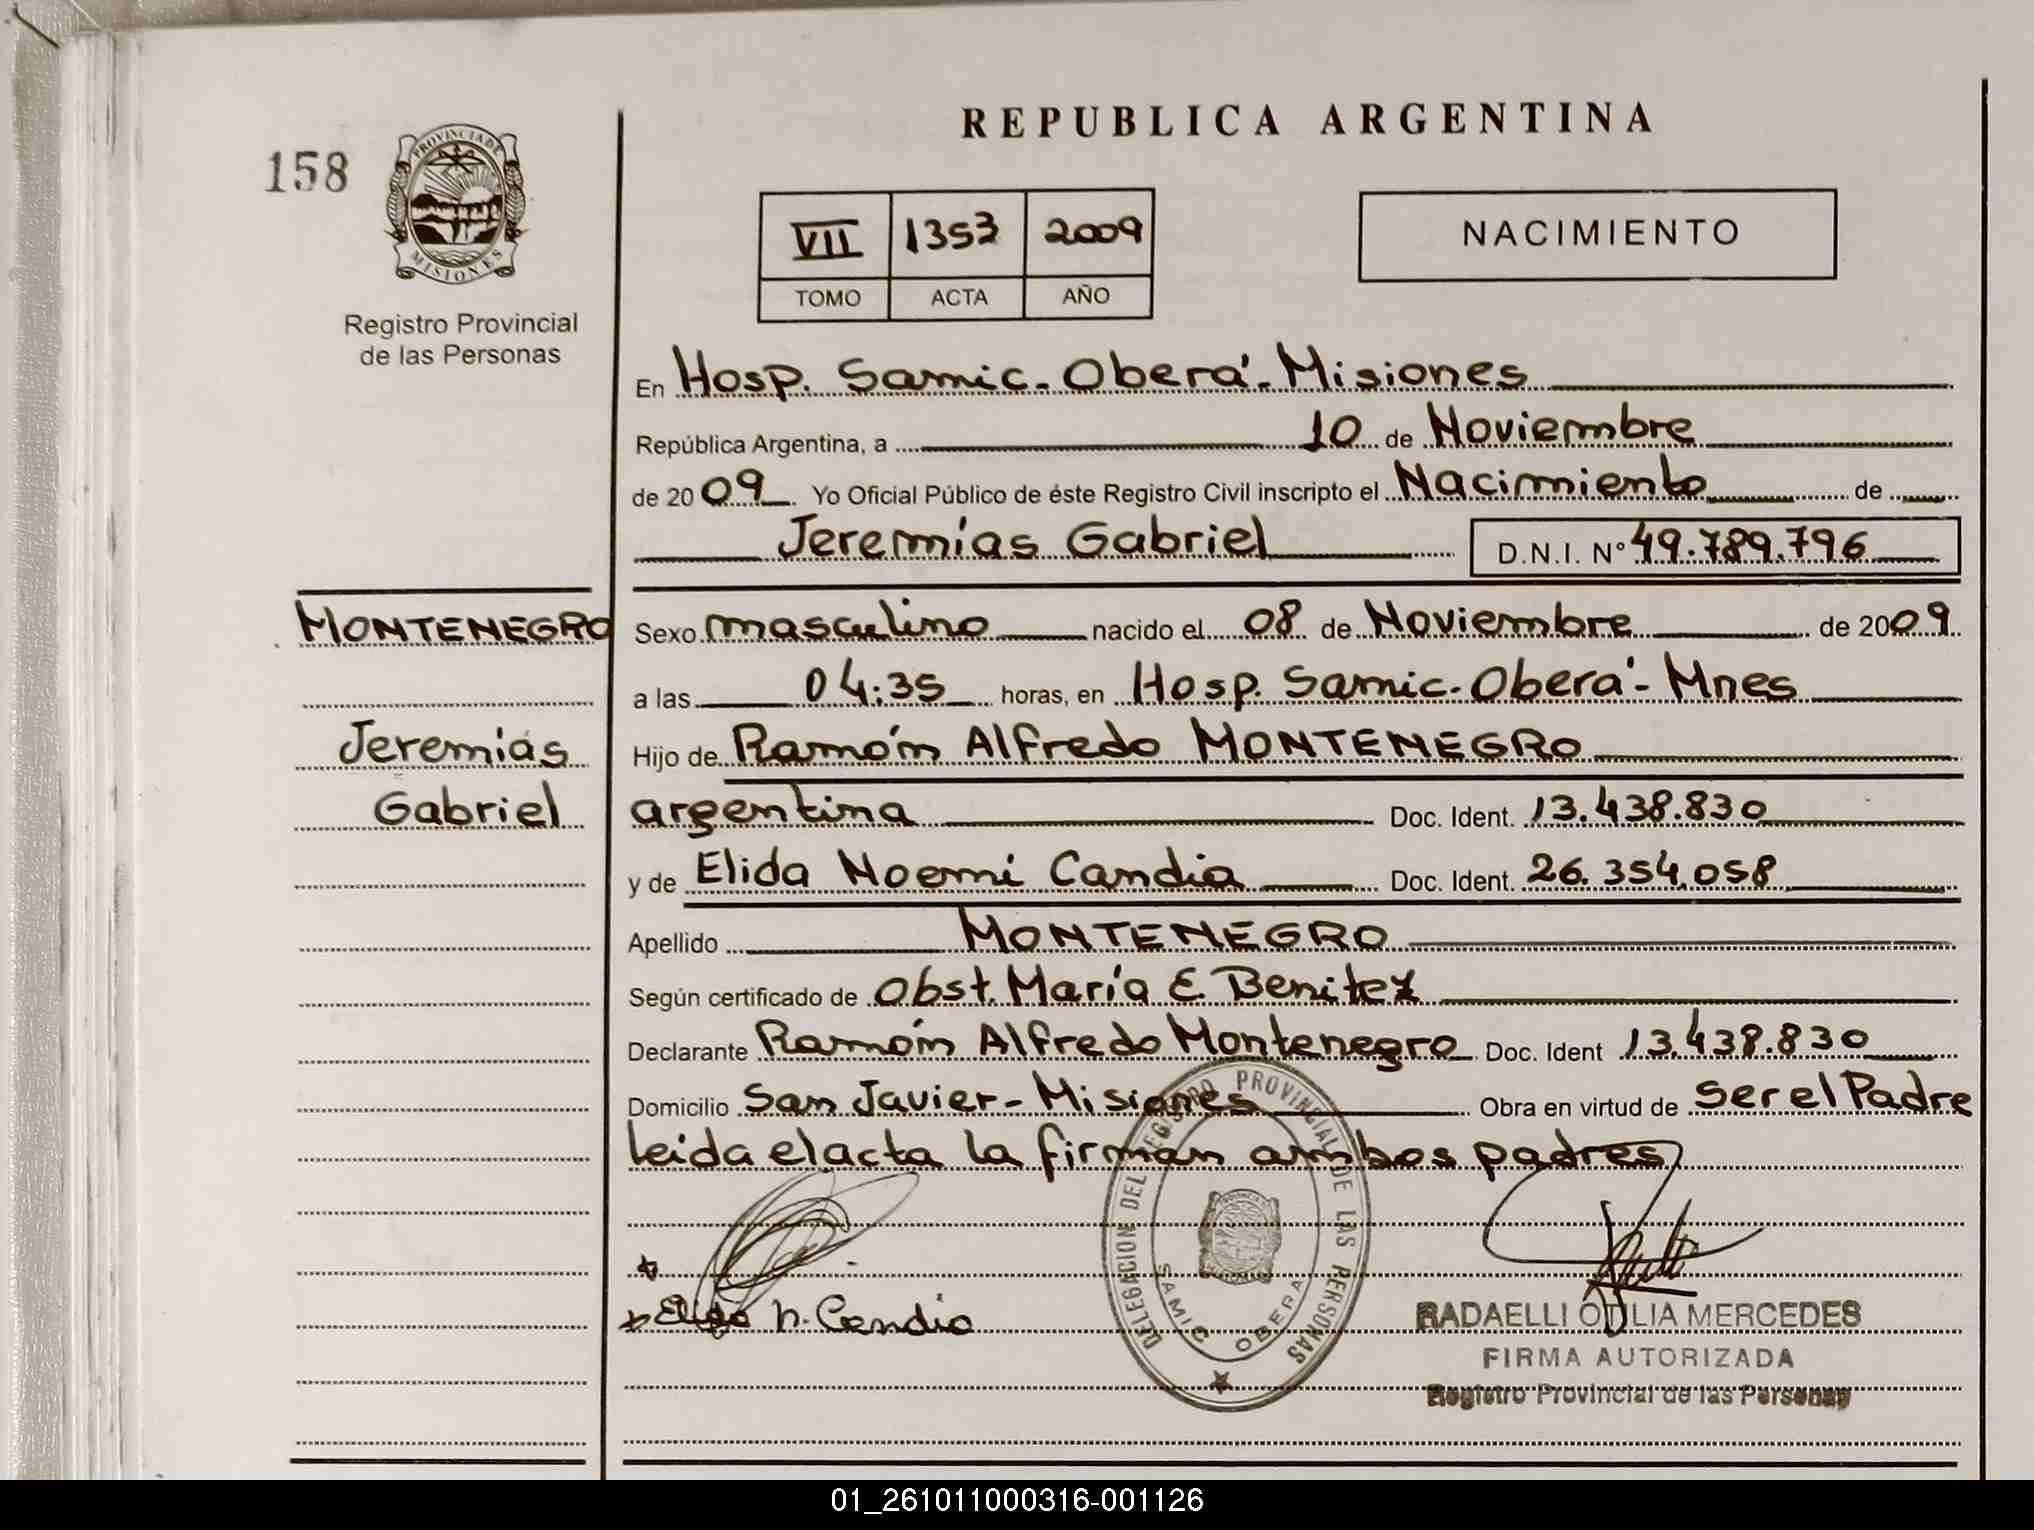 REPUBLICA ARGENTINA
158
PROVINCIA DE
MISIONES
Registro Provincial
de las Personas
VII 1353 2009
TOMO ACTA AÑO
NACIMIENTO
En Hosp. Samic - Oberá - Misiones
República Argentina, a 10 de Noviembre
de 2009 Yo Oficial Público de éste Registro Civil inscripto el Nacimiento de
Jeremías Gabriel D.N.I. N° 49.789.796
MONTENEGRO
Jeremías
Gabriel
Sexo masculino nacido el 08 de Noviembre de 2009
a las 04:35 horas, en Hosp. Samic - Oberá - Mnes
Hijo de Ramón Alfredo MONTENEGRO
argentina Doc. Ident. 13.438.830
y de Elida Noemí Candia Doc. Ident. 26.354.058
Apellido MONTENEGRO
Según certificado de Obst. María E. Benitez
Declarante Ramón Alfredo Montenegro Doc. Ident 13.438.830
Domicilio San Javier - Misiones Obra en virtud de ser el Padre
leída el acta la firman ambos padres
Elida N. Candia
DELEGACION DEL REGISTRO PROVINCIAL DE LAS PERSONAS
SAMIC OBERA
RADAELLI OTILIA MERCEDES
FIRMA AUTORIZADA
Registro Provincial de las Personas
01_261011000316-001126